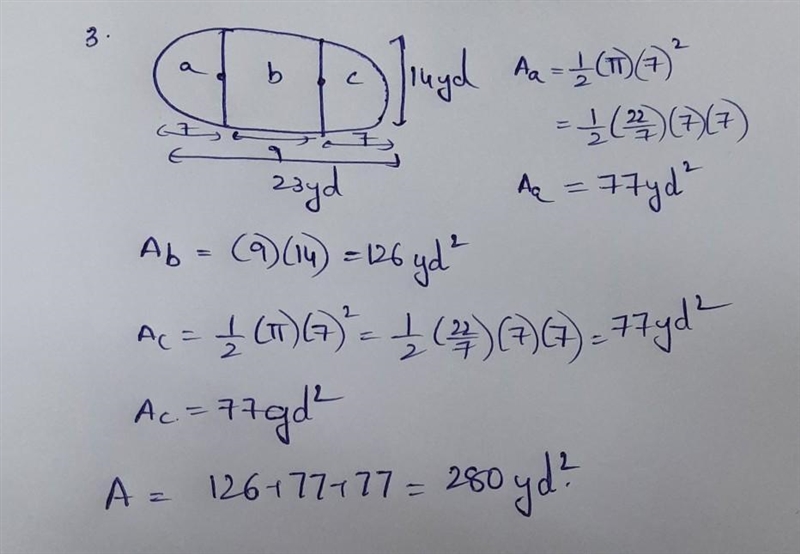 3.
a b c 14yd
7 9 7
23yd
Aa = 1/2 (π)(7)²
= 1/2 (22/7)(7)(7)
Aa = 77yd²
Ab = (9)(14) = 126 yd²
Ac = 1/2 (π)(7)² = 1/2 (22/7)(7)(7) = 77yd²
Ac. = 77yd²
A = 126+77+77 = 280 yd².